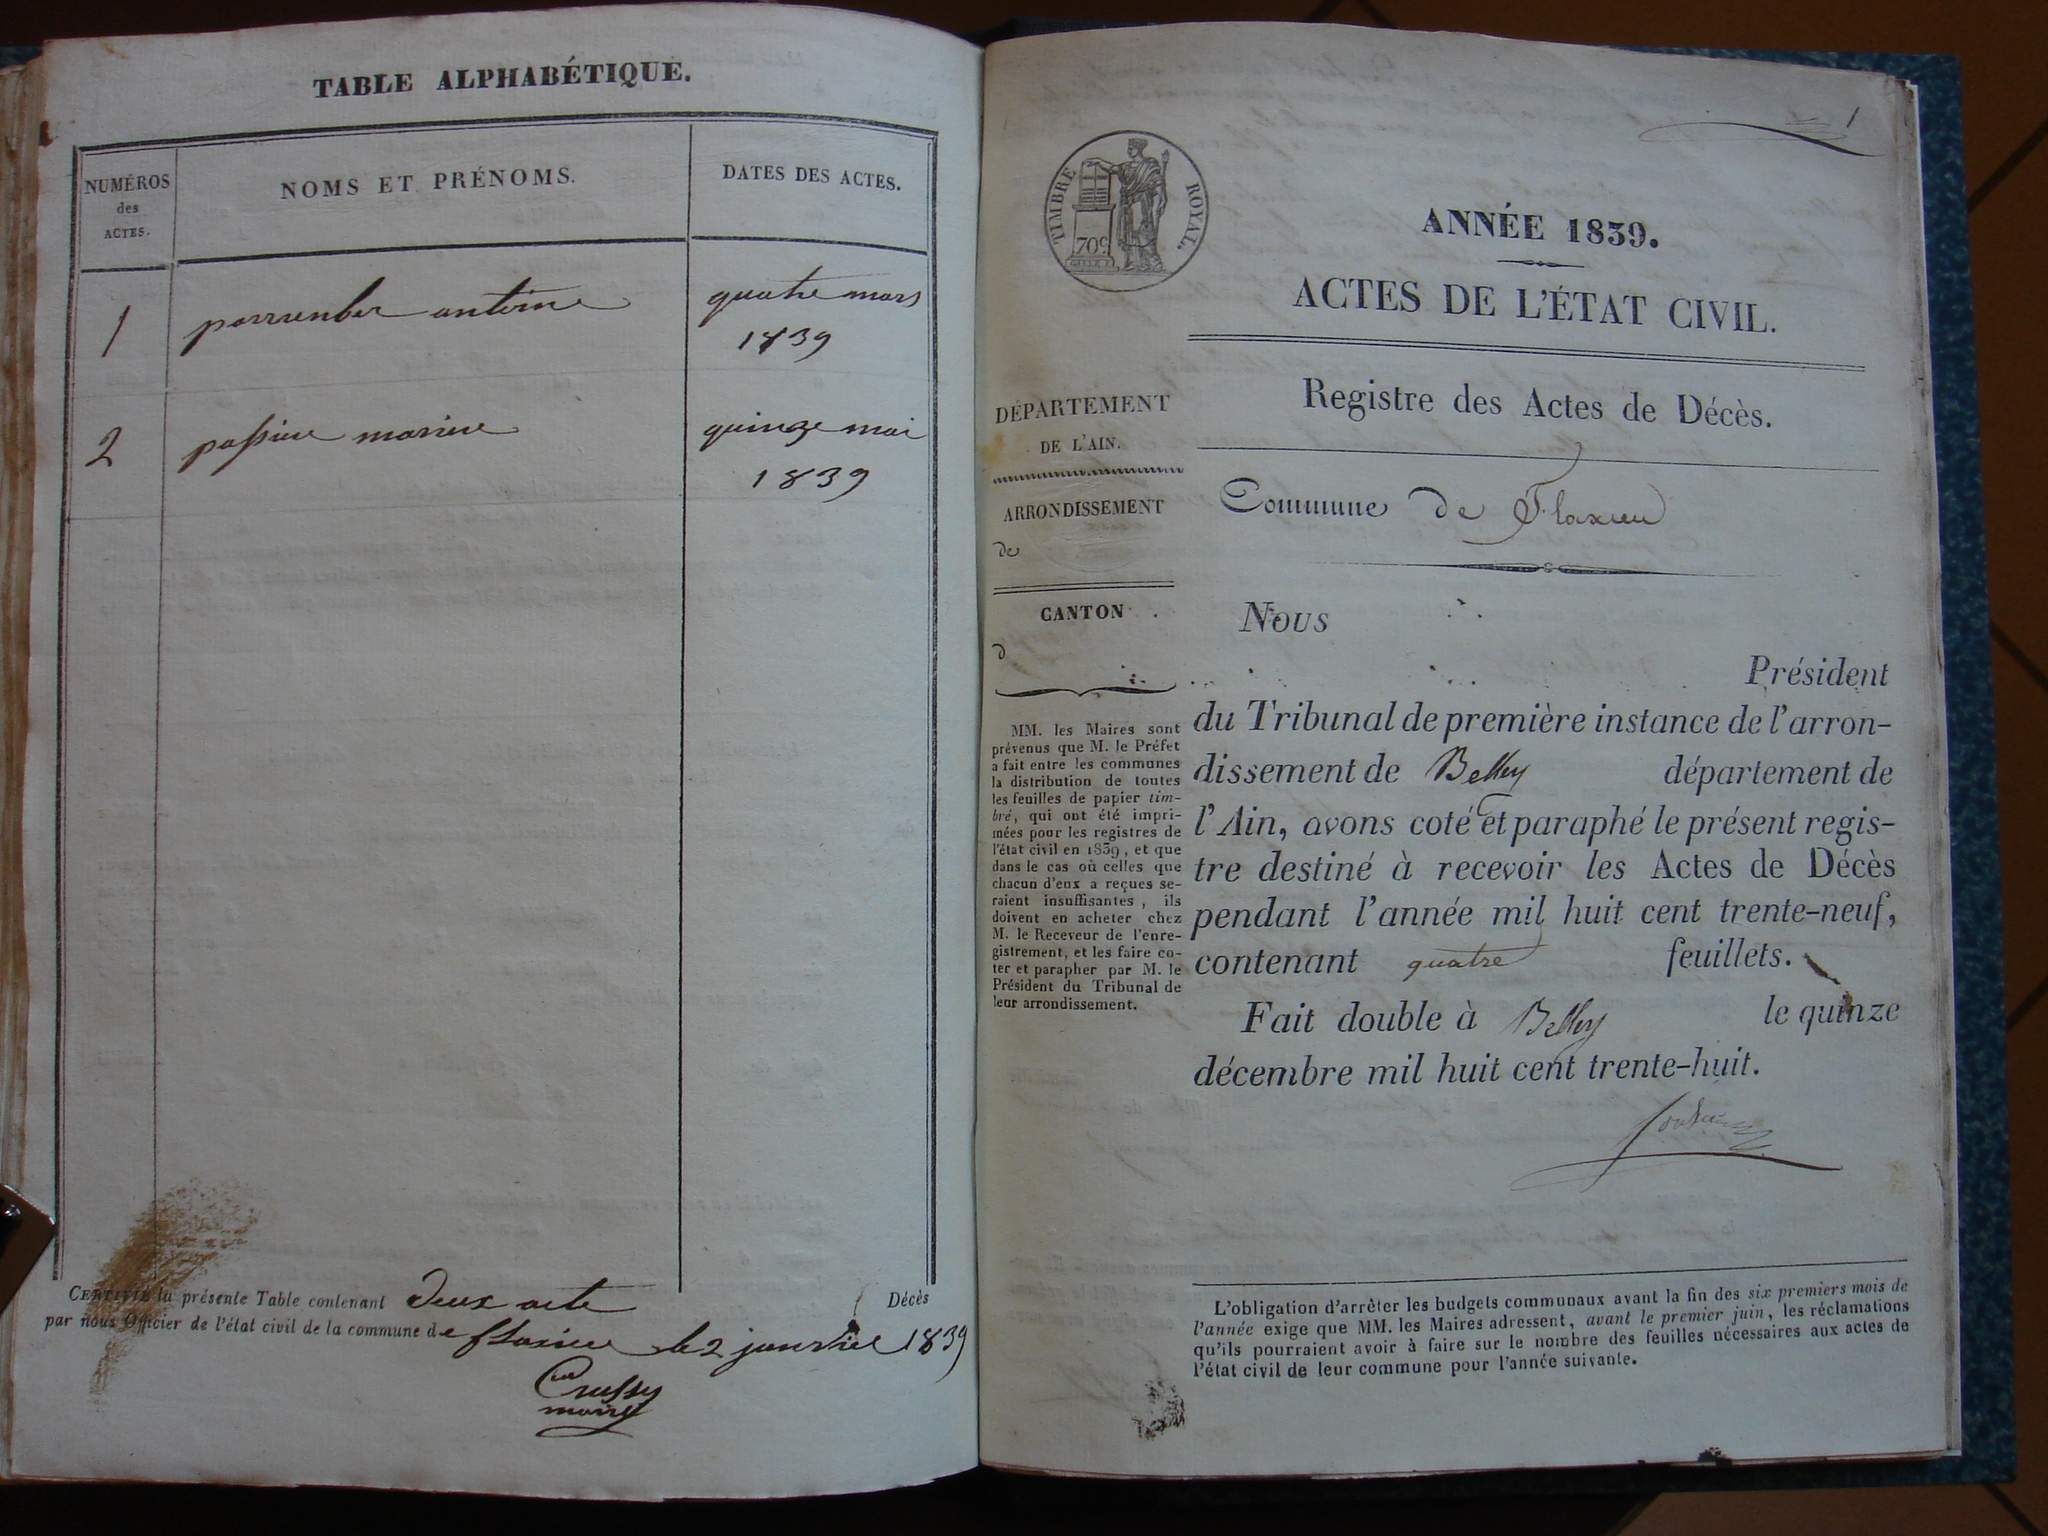 TABLE ALPHABÉTIQUE.
NUMÉROS
des
ACTES.
NOMS ET PRÉNOMS.
DATES DES ACTES.
1
antoine
quatre mars
1839
2
quinze mai
1839
CERTIFIÉ la présente Table contenant deux acte Décès
par nous Officier de l'état civil de la commune de flaxieu le 2 janvier 1839
maire
1
TIMBRE ROYAL.
70c
ANNÉE 1839.
ACTES DE L'ÉTAT CIVIL.
Registre des Actes de Décès.
Commune de Flaxieu
DÉPARTEMENT
DE L'AIN.
ARRONDISSEMENT
de
CANTON
d
MM. les Maires sont
prévenus que M. le Préfet
a fait entre les communes
la distribution de toutes
les feuilles de papier tim-
bré, qui ont été impri-
mées pour les registres de
l'état civil en 1839, et que
dans le cas où celles que
chacun d'eux a reçues se-
raient insuffisantes, ils
doivent en acheter chez
M. le Receveur de l'enre-
gistrement, et les faire co-
ter et parapher par M. le
Président du Tribunal de
leur arrondissement.
Nous
Président
du Tribunal de première instance de l'arron-
dissement de Belley département de
l'Ain, avons coté et paraphé le présent regis-
tre destiné à recevoir les Actes de Décès
pendant l'année mil huit cent trente-neuf,
contenant quatre feuillets.
Fait double à Belley le quinze
décembre mil huit cent trente-huit.
L'obligation d'arrêter les budgets communaux avant la fin des six premiers mois de
l'année exige que MM. les Maires adressent, avant le premier juin, les réclamations
qu'ils pourraient avoir à faire sur le nombre des feuilles nécessaires aux actes de
l'état civil de leur commune pour l'année suivante.